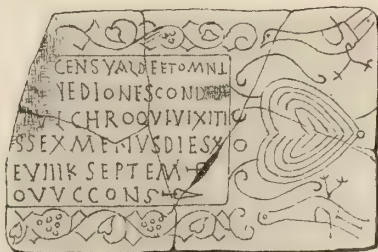 CENSVALDEETOMNI
IEDIONESCOND
CHROQVIVIXITI
SSEXMENVSDIESX
EVIIIKSEPTEM
OVVCCONS